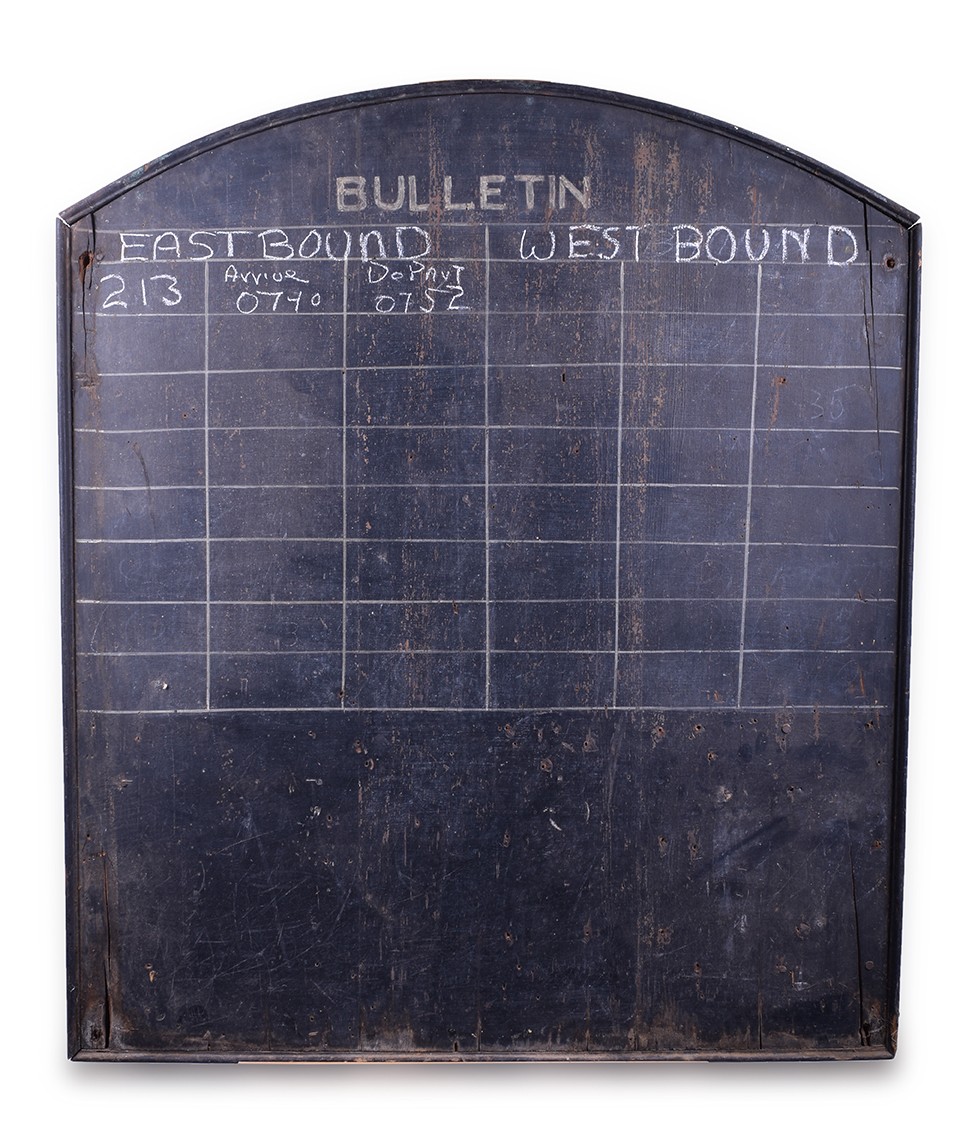 BULLETIN
EAST BOUND WEST BOUND
213 Arrive DePart
0740 0752
35